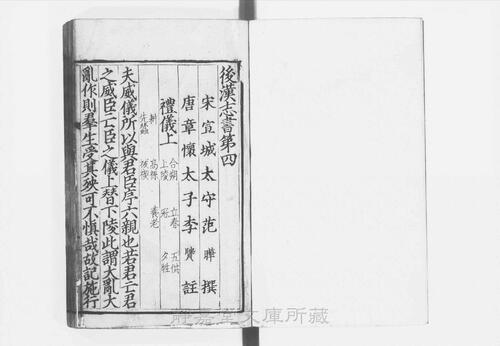 後漢志書第四
宋宣城太守范曄撰
唐章懷太子李賢註
禮儀上
合朔 立春 五供
上陵 冠 夕牲
耕 高禖 養老
先蠶 祓禊
夫威儀所以與君臣序六親也若君亡君
之威臣亡臣之儀上替下陵此謂大亂大
亂作則羣生受其殃可不慎哉故記施行
靜嘉堂文庫所藏